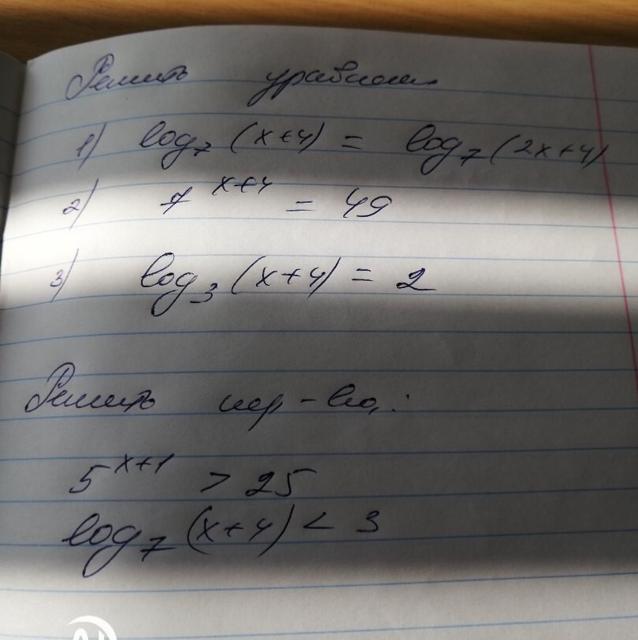 Решить уравнения
1) log₇ (x+4) = log₇ (2x+4)
2) 7^(x+4) = 49
3) log₃ (x+4) = 2
Решить нер-ва:
5^(x+1) > 25
log₇ (x+4) < 3